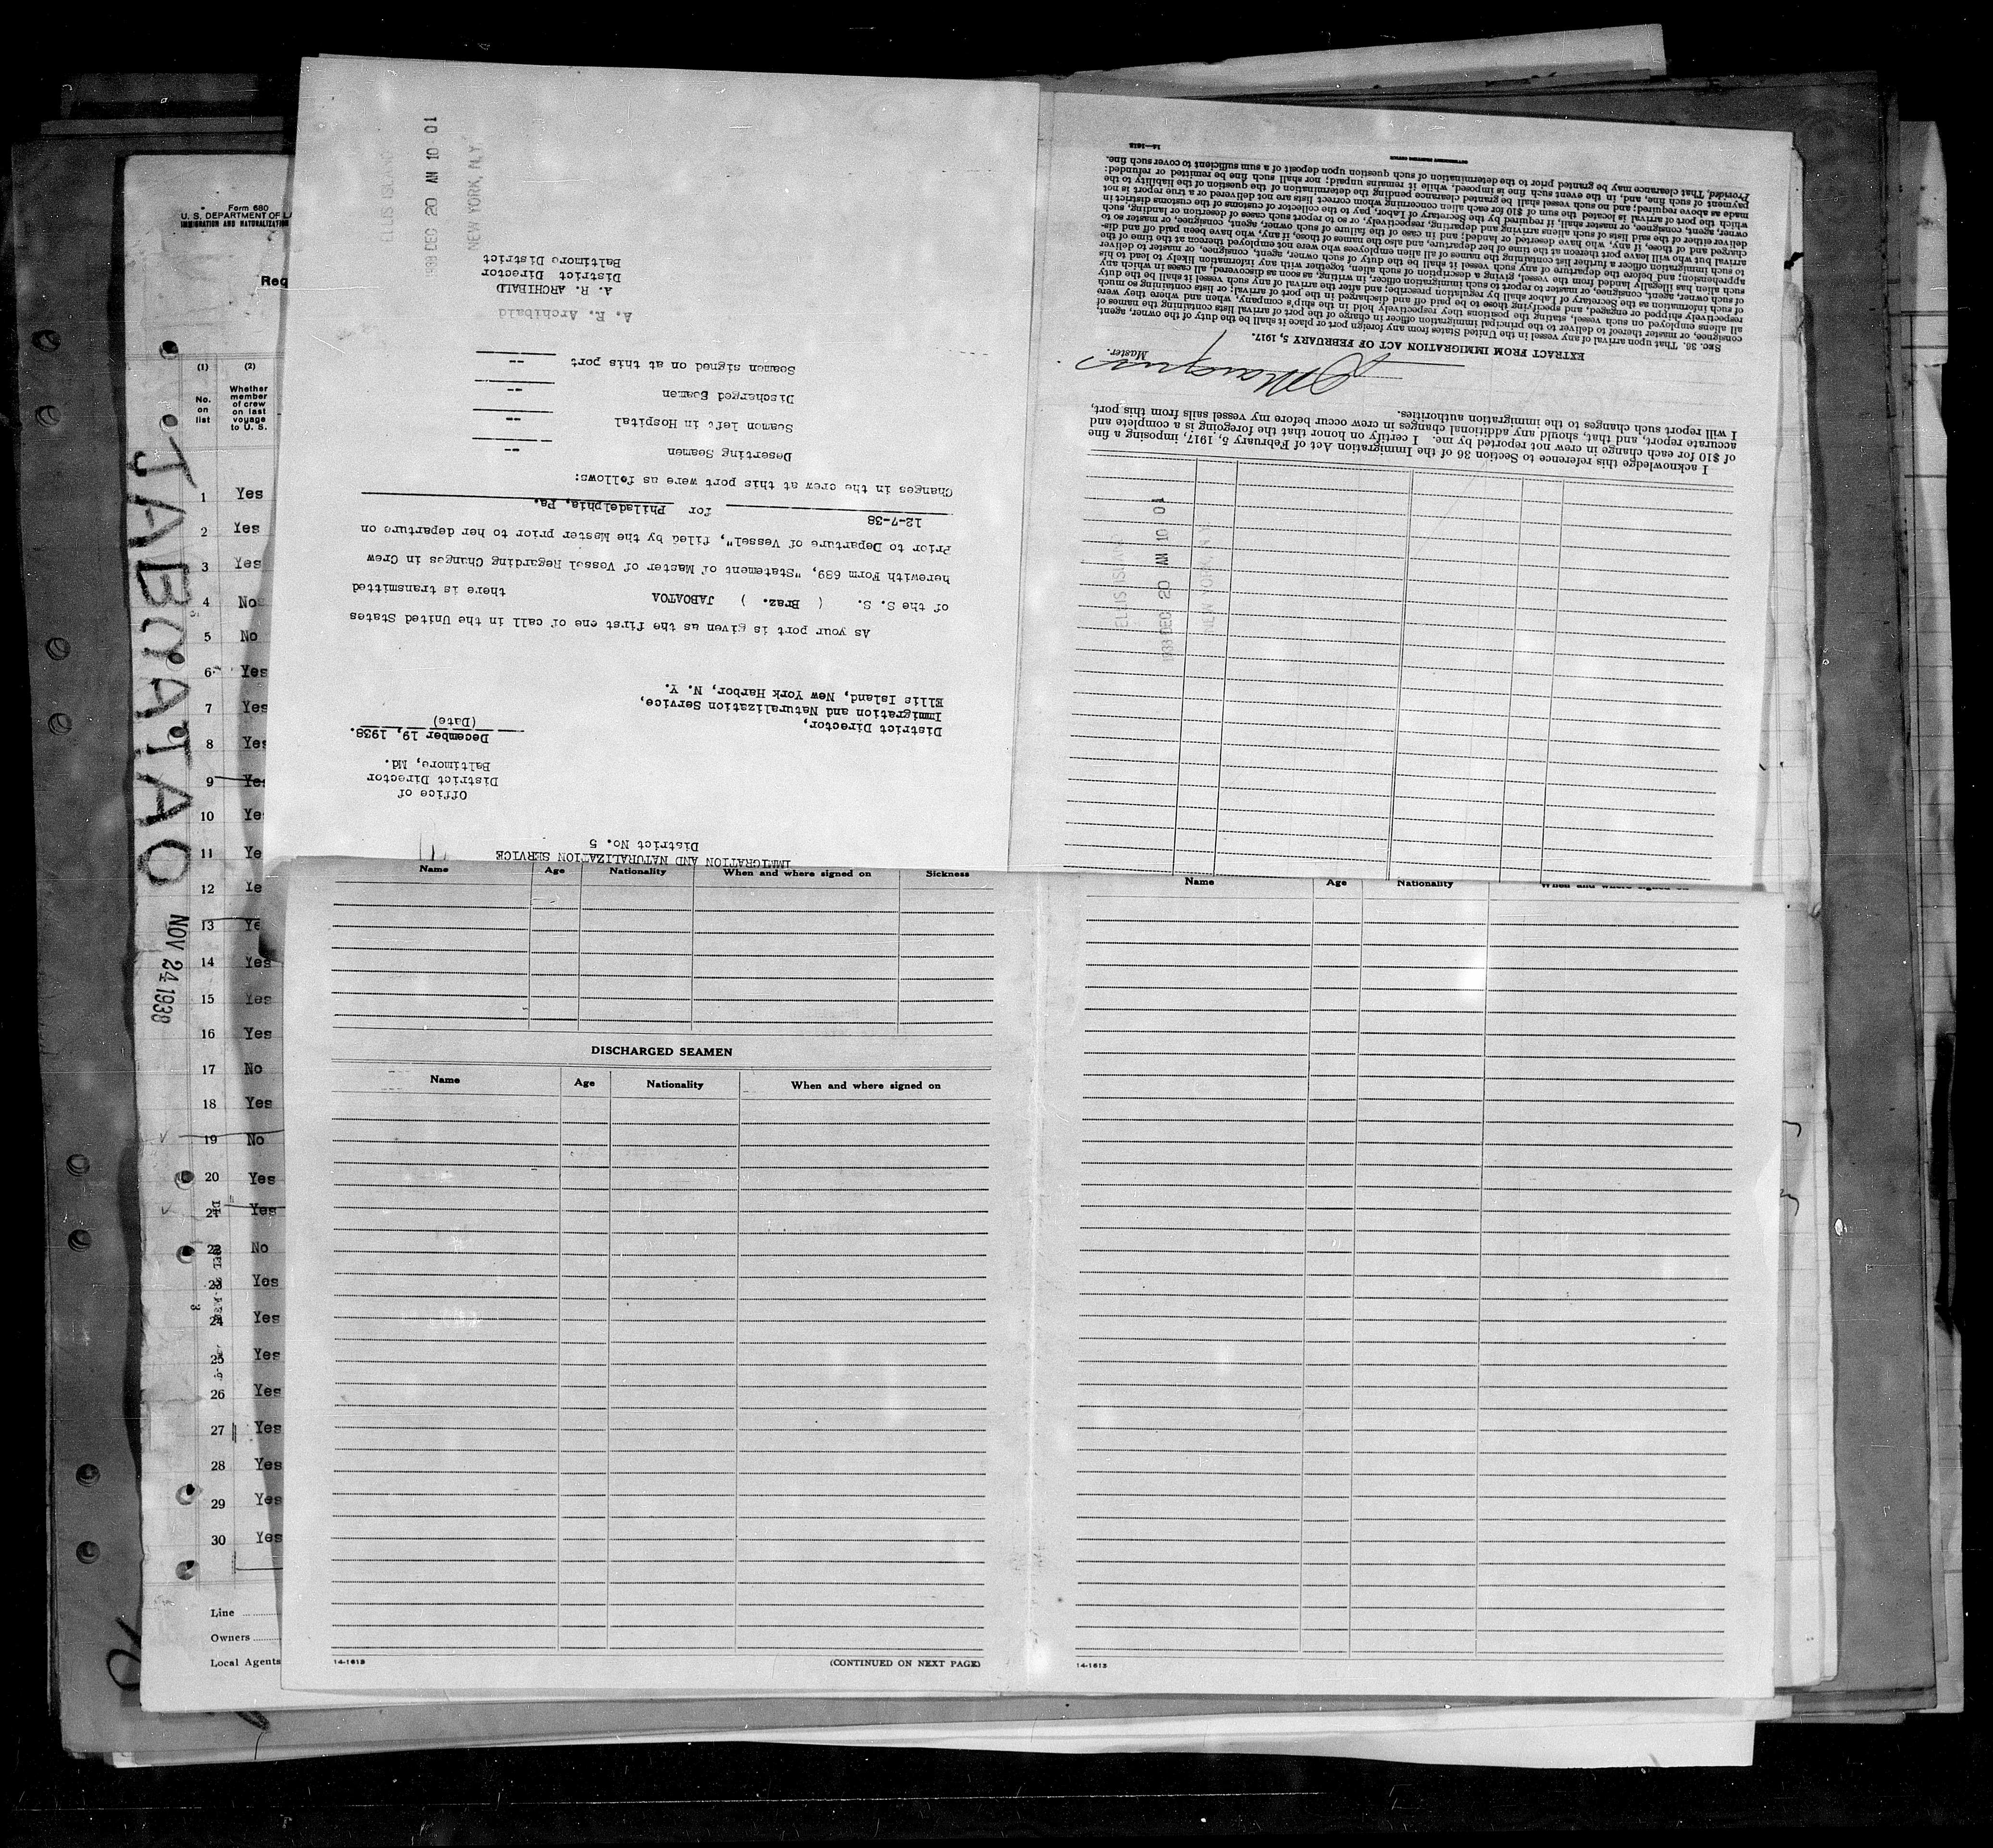 Form 680
U. S. DEPARTMENT OF LA
IMMIGRATION AND NATURALIZATION
Req
(1)
(2)
No.
on
list
Whether
member
of crew
on last
voyage
to U. S.
1 Yes
2 Yes
3 Yes
4 No
5 No
6 Yes
7 Yes
8 Yes
9 Yes
10 Ye
11 Ye
12 Ye
13 Ye
14 Yes
15 Yes
16 Yes
17 No
18 Yes
19 No
20 Yes
21 Yes
22 No
23 Yes
24 Yes
25 Yes
26 Yes
27 Yes
28 Yes
29 Yes
30 Yes
Line
Owners
Local Agents
JABOATAO
NOV 24 1938
IMMIGRATION AND NATURALIZATION SERVICE
District No. 5
Office of
District Director
Baltimore, Md.
December 19, 1938.
(Date)
District Director,
Immigration and Naturalization Service,
Ellis Island, New York Harbor, N. Y.
As your port is given as the first one of call in the United States
of the S. S. ( Braz. ) JABOATOA there is transmitted
herewith Form 689, "Statement of Master of Vessel Regarding Changes in Crew
Prior to Departure of Vessel", filed by the Master prior to her departure on
12-7-38 for Philadelphia, Pa.
Changes in the crew at this port were as follows:
Deserting Seamen --
Seamen left in Hospital --
Discharged Seamen --
Seamen signed on at this port --
A. R. Archibald
A. R. ARCHIBALD
District Director
Baltimore District
ELLIS ISLAND
1938 DEC 20 AM 10 01
NEW YORK, N.Y.
ELLIS ISLAND
1938 DEC 20 AM 10 01
NEW YORK, N.Y.
I acknowledge this reference to Section 36 of the Immigration Act of February 5, 1917, imposing a fine
of $10 for each change in crew not reported by me. I certify on honor that the foregoing is a complete and
accurate report, and that, should any additional changes in crew occur before my vessel sails from this port,
I will report such changes to the immigration authorities.
Master.
EXTRACT FROM IMMIGRATION ACT OF FEBRUARY 5, 1917.
SEC. 36. That upon arrival of any vessel in the United States from any foreign port or place it shall be the duty of the owner, agent,
consignee, or master thereof to deliver to the principal immigration officer in charge of the port of arrival lists containing the names of
all aliens employed on such vessel, stating the positions they respectively hold in the ship's company, when and where they were
respectively shipped or engaged, and specifying those to be paid off and discharged in the port of arrival; or lists containing so much
of such information as the Secretary of Labor shall by regulation prescribe; and after the arrival of any such vessel it shall be the duty
of such owner, agent, consignee, or master to report to such immigration officer, in writing, as soon as discovered, all cases in which any
such alien has illegally landed from the vessel, giving a description of such alien, together with any information likely to lead to his
apprehension; and before the departure of any such vessel it shall be the duty of such owner, agent, consignee, or master to deliver
to such immigration officer a further list containing the names of all alien employees who were not employed thereon at the time of the
arrival but who will leave port thereon at the time of her departure, and also the names of those, if any, who have been paid off and dis-
charged and of those, if any, who have deserted or landed; and in case of the failure of such owner, agent, consignee, or master so to
deliver either of the said lists of such aliens arriving and departing, respectively, or so to report such cases of desertion or landing, such
owner, agent, consignee, or master, shall, if required by the Secretary of Labor, pay to the collector of customs of the customs district in
which the port of arrival is located the sum of $10 for each alien concerning whom correct lists are not delivered or a true report is not
made as above required; and no such vessel shall be granted clearance pending the determination of the question of the liability to the
payment of such fine, and, in the event such fine is imposed, while it remains unpaid; nor shall such fine be remitted or refunded:
Provided, That clearance may be granted prior to the determination of such question upon deposit of a sum sufficient to cover such fine.
14-1613
Name Age Nationality When and where signed on Sickness
DISCHARGED SEAMEN
Name Age Nationality When and where signed on
14-1613 (CONTINUED ON NEXT PAGE)
Name Age Nationality When and where signed on
14-1613